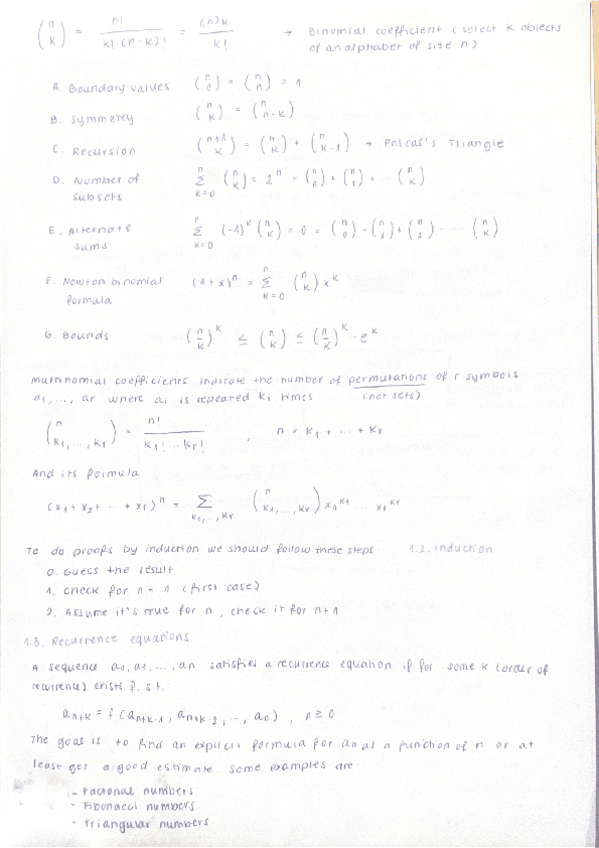 (n k) = n! / k! (n-k)! = (n)k / k! → Binomial coefficient (select k objects
of an alphabet of size n)
A. Boundary values (n 0) = (n n) = 1
B. Symmetry (n k) = (n n-k)
C. Recursion (n+1 k) = (n k) + (n k-1) → Pascal's Triangle
D. Number of subsets Σ k=0 n (n k) = 2^n = (n 0) + (n 1) + ... (n k)
E. Alternate sums Σ k=0 n (-1)^k (n k) = 0 = (n 0) - (n 1) + (n 2) - ... (n k)
F. Newton binomial formula (1+x)^n = Σ k=0 n (n k) x^k
G. Bounds (n/k)^k ≤ (n k) ≤ (n/k)^k · e^k
Multinomial coefficients indicate the number of permutations of r symbols
a1, ..., ar where ai is repeated ki times (not sets)
(n k1, ..., kr) = n! / k1! ... kr! , n = k1 + ... + kr
And its formula
(x1 + x2 + ... + xr)^n = Σ k1, .., kr (n k1, ..., kr) x1^k1 ... xr^kr
To do proofs by induction we should follow these steps 1.2. Induction
0. Guess the result
1. Check for n = 1 (first case)
2. Assume it's true for n, check it for n+1
1.3. Recurrence equations
A sequence a0, a1, ..., an satisfies a recurrence equation if for some k (order of
recurrence) exists f. s.t.
an+k = f (an+k-1, an+k-2, .., an), n ≥ 0
The goal is to find an explicit formula for an as a function of n or at
least get a good estimate. Some examples are
- Factorial numbers
- Fibonacci numbers
- Triangular numbers